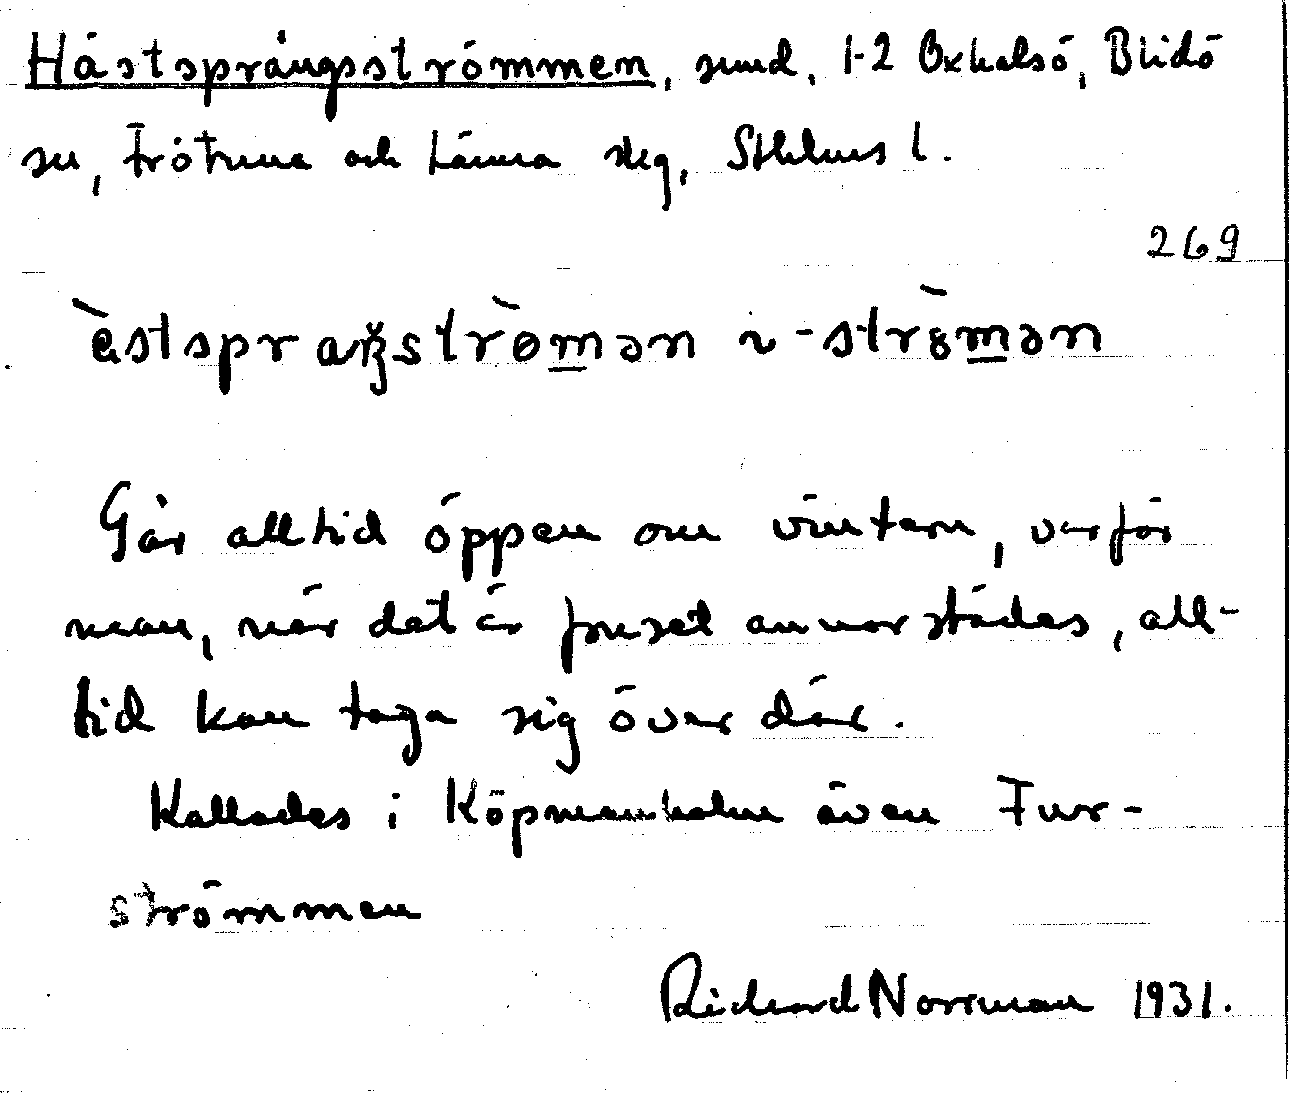 Hästsprångsströmmen, sund, 1-2 Oxhalsö, Blidö
sn, Frötuna och Länna skg, Sthlms l.
269
èstspraŋstrø̀mən ~ -strömən
Går alltid öppen om vintern, varför
man, när det är fruset annorstädes, all-
tid kan taga sig över där.
Kallades i Köpmanholm även Fur-
strömmen
Richard Norrman 1931.